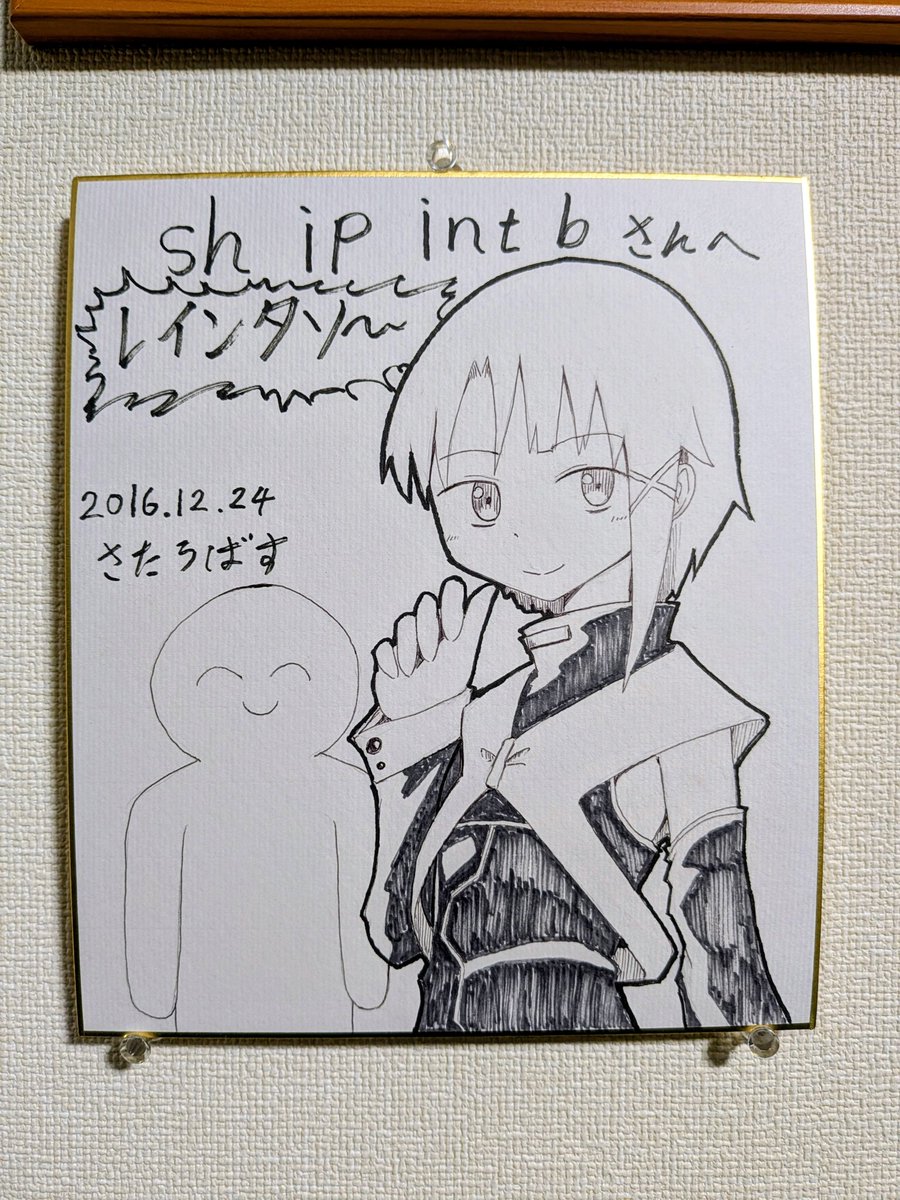 sh ip int b さんへ
レインタソ〜
2016.12.24
さたろばす